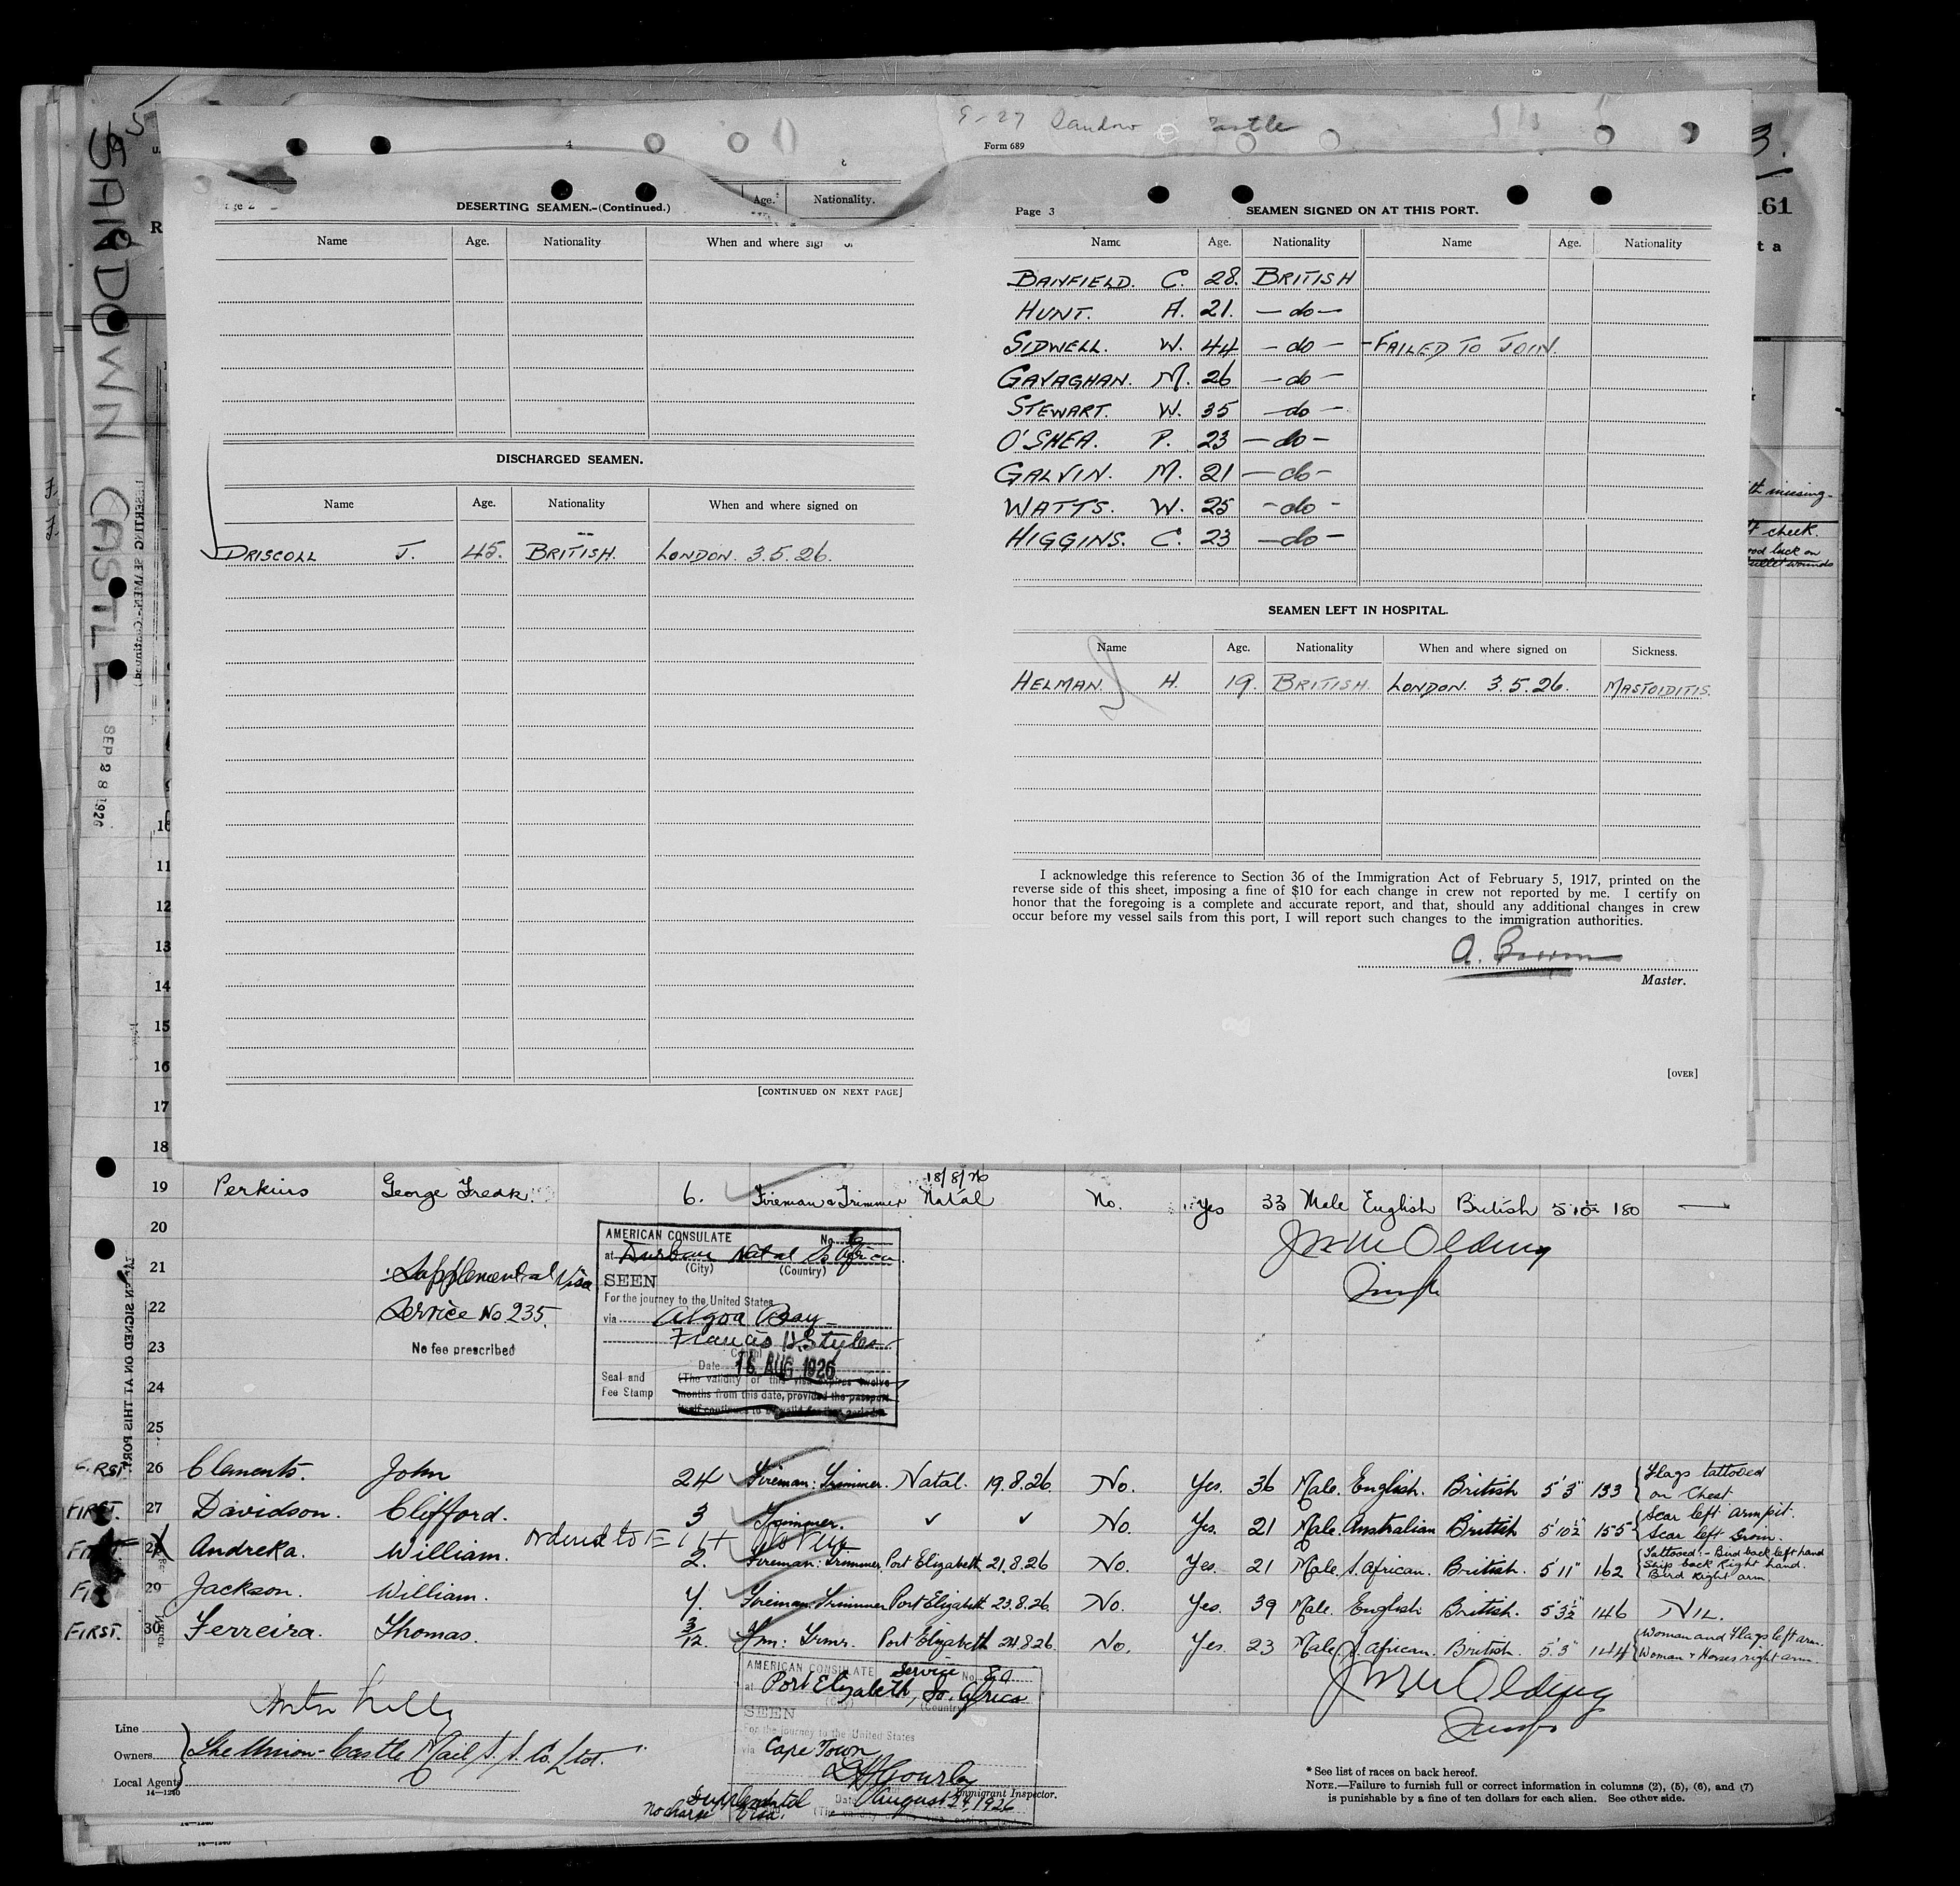 SANDOWN CASTLE
SEP 28 1926
9-27 Castle
Form 689
4
Age. Nationality.
DESERTING SEAMEN.-(Continued.)
Name Age. Nationality When and where
DISCHARGED SEAMEN.
Name Age. Nationality When and where signed on
DRISCOLL J. 45. BRITISH. LONDON. 3.5.26.
[CONTINUED ON NEXT PAGE]
Page 3 SEAMEN SIGNED ON AT THIS PORT.
Name Age. Nationality Name Age. Nationality
BANFIELD. C. 28. BRITISH
HUNT. A. 21. — do —
SIDWELL. W. 44 — do — - FAILED TO JOIN.
GAVAGHAN. M. 26 — do —
STEWART. W. 35 — do —
O'SHEA. P. 23 — do —
GALVIN. M. 21 — do -
WATTS. W. 25 - do -
HIGGINS. C. 23 — do —
SEAMEN LEFT IN HOSPITAL.
Name Age. Nationality When and where signed on Sickness.
HELMAN. H. 19. BRITISH. LONDON. 3.5.26. MASTOIDITIS.
I acknowledge this reference to Section 36 of the Immigration Act of February 5, 1917, printed on the
reverse side of this sheet, imposing a fine of $10 for each change in crew not reported by me. I certify on
honor that the foregoing is a complete and accurate report, and that, should any additional changes in crew
occur before my vessel sails from this port, I will report such changes to the immigration authorities.
A. Brown
Master.
[OVER]
3.
161
t a
missing-
check.
wounds
11
12
13
14
15
16
17
18
18/8/26
19 Perkins George Fredk. 6. Fireman & Trimmer Natal No. Yes 33 Male English British 5'10½ 180 —
20
21
22
23
24
25
Supplemental Visa
Service No 235.
No fee prescribed
AMERICAN CONSULATE No. 6
at Durban Natal So Africa
(City) (Country)
SEEN
For the journey to the United States
via Algoa Bay
Francis H. Styles
Consul
Date 18 AUG 1926
Seal and
Fee Stamp
(The validity of this visa expires twelve
months from this date, provided the passport
itself continues to be valid for that period.)
FIRST. 26 Clements. John 24 Fireman: Trimmer. Natal. 19.8.26. No. Yes. 36 Male. English. British 5'3" 133 Flags tattooed
on Chest.
FIRST. 27 Davidson. Clifford. 3 Trimmer. ✓ ✓ No. Yes. 21 Male. Australian British 5'10½" 155 Scar left armpit.
Scar left Groin.
28 Andreka. William. 2. Fireman: Trimmer Port Elizabeth 21.8.26 No. Yes. 21 Male. S. African. British. 5'11" 162 Tattooed:- Bird back left hand
Ship back Right hand.
Bird Right arm.
ordered to
29 Jackson. William. 7. Fireman. Trimmer Port Elizabeth 23.8.26. No. Yes. 39 Male. English British. 5'3½" 146 NIL.
FIRST. 30 Ferreira. Thomas. 3/12. Fm: Trmr. Port Elizabeth 24.8.26. No. Yes. 23 Male. S. African. British. 5'3" 144 Woman and Flags left arm.
Woman + Horses right arm.
AMERICAN CONSULATE Service No. 80
at Port Elizabeth, So. Africa
(City) (Country)
SEEN
For the journey to the United States
via Cape Town
Date August 24, 1926
Supplemental
No charge Visa.
Immigrant Inspector.
Line
Owners The Union-Castle Mail S. S. Co. Ltd.
Local Agents
14—1240
* See list of races on back hereof.
NOTE.—Failure to furnish full or correct information in columns (2), (5), (6), and (7)
is punishable by a fine of ten dollars for each alien. See other side.